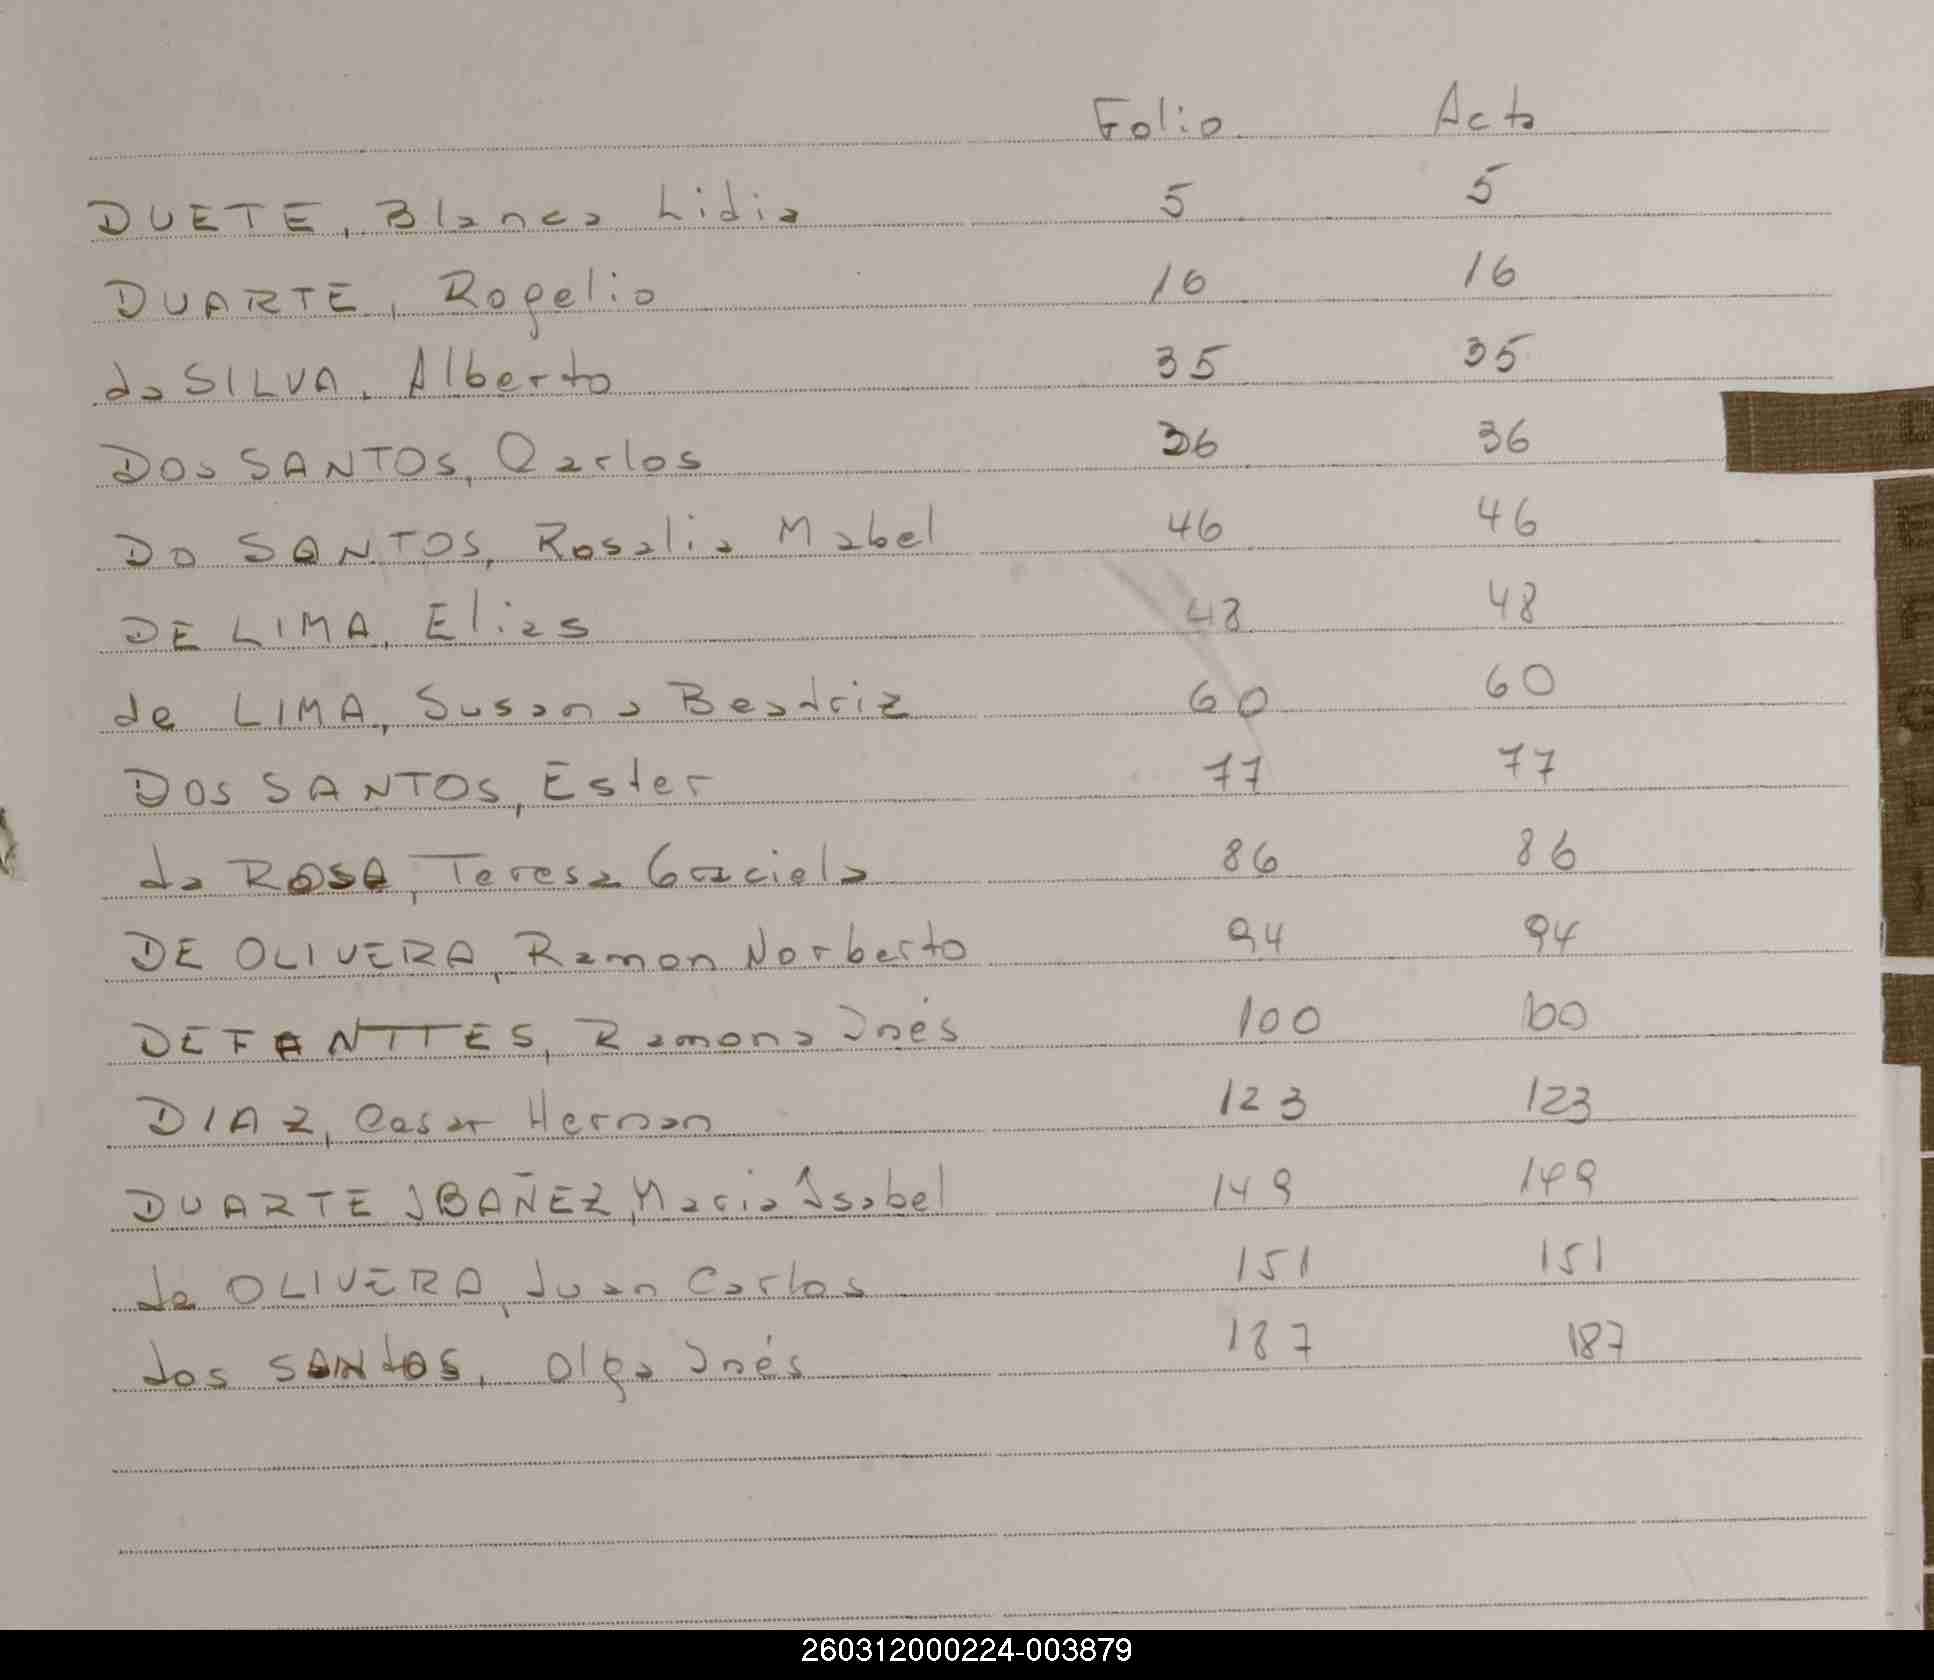 Folio Acta
DUETE, Blanca Lidia 5 5
DUARTE, Rogelio 16 16
da SILVA, Alberto 35 35
DOS SANTOS, Carlos 36 36
DO SANTOS, Rosalia Mabel 46 46
DE LIMA, Elias 48 48
de LIMA, Susana Beatriz 60 60
DOS SANTOS, Ester 77 77
da ROSA, Teresa Graciela 86 86
DE OLIVERA, Ramon Norberto 94 94
DEFANTTES, Ramona Inés 100 100
DIAZ, Cesar Hernan 123 123
DUARTE IBAÑEZ, Maria Isabel 149 149
de OLIVERA, Juan Carlos 151 151
dos SANtOS, Olga Inés 187 187
260312000224-003879